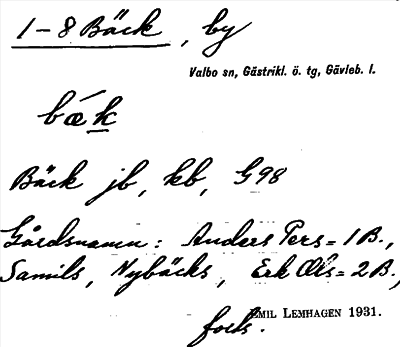 1-8 Bäck, by
Valbo sn, Gästrikl. ö. tg, Gävleb. l.
bǽk
Bäck jb, kb, G98
Gårdsnamn: Anders Pers = 1 B.,
Samils, Nybäcks, Erk Ols = 2 B.,
forts.
EMIL LEMHAGEN 1931.